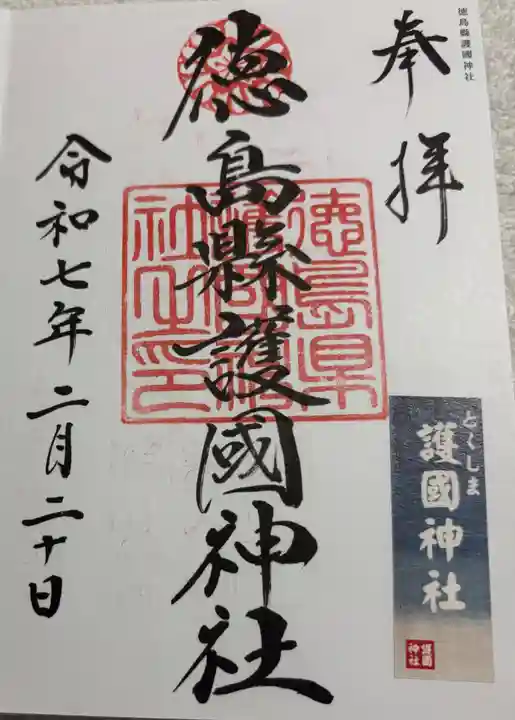 徳島縣護國神社
奉拝
徳島縣護國神社
徳島県
護國神
社之印
令和七年二月二十日
とくしま
護國神社
護國
神社